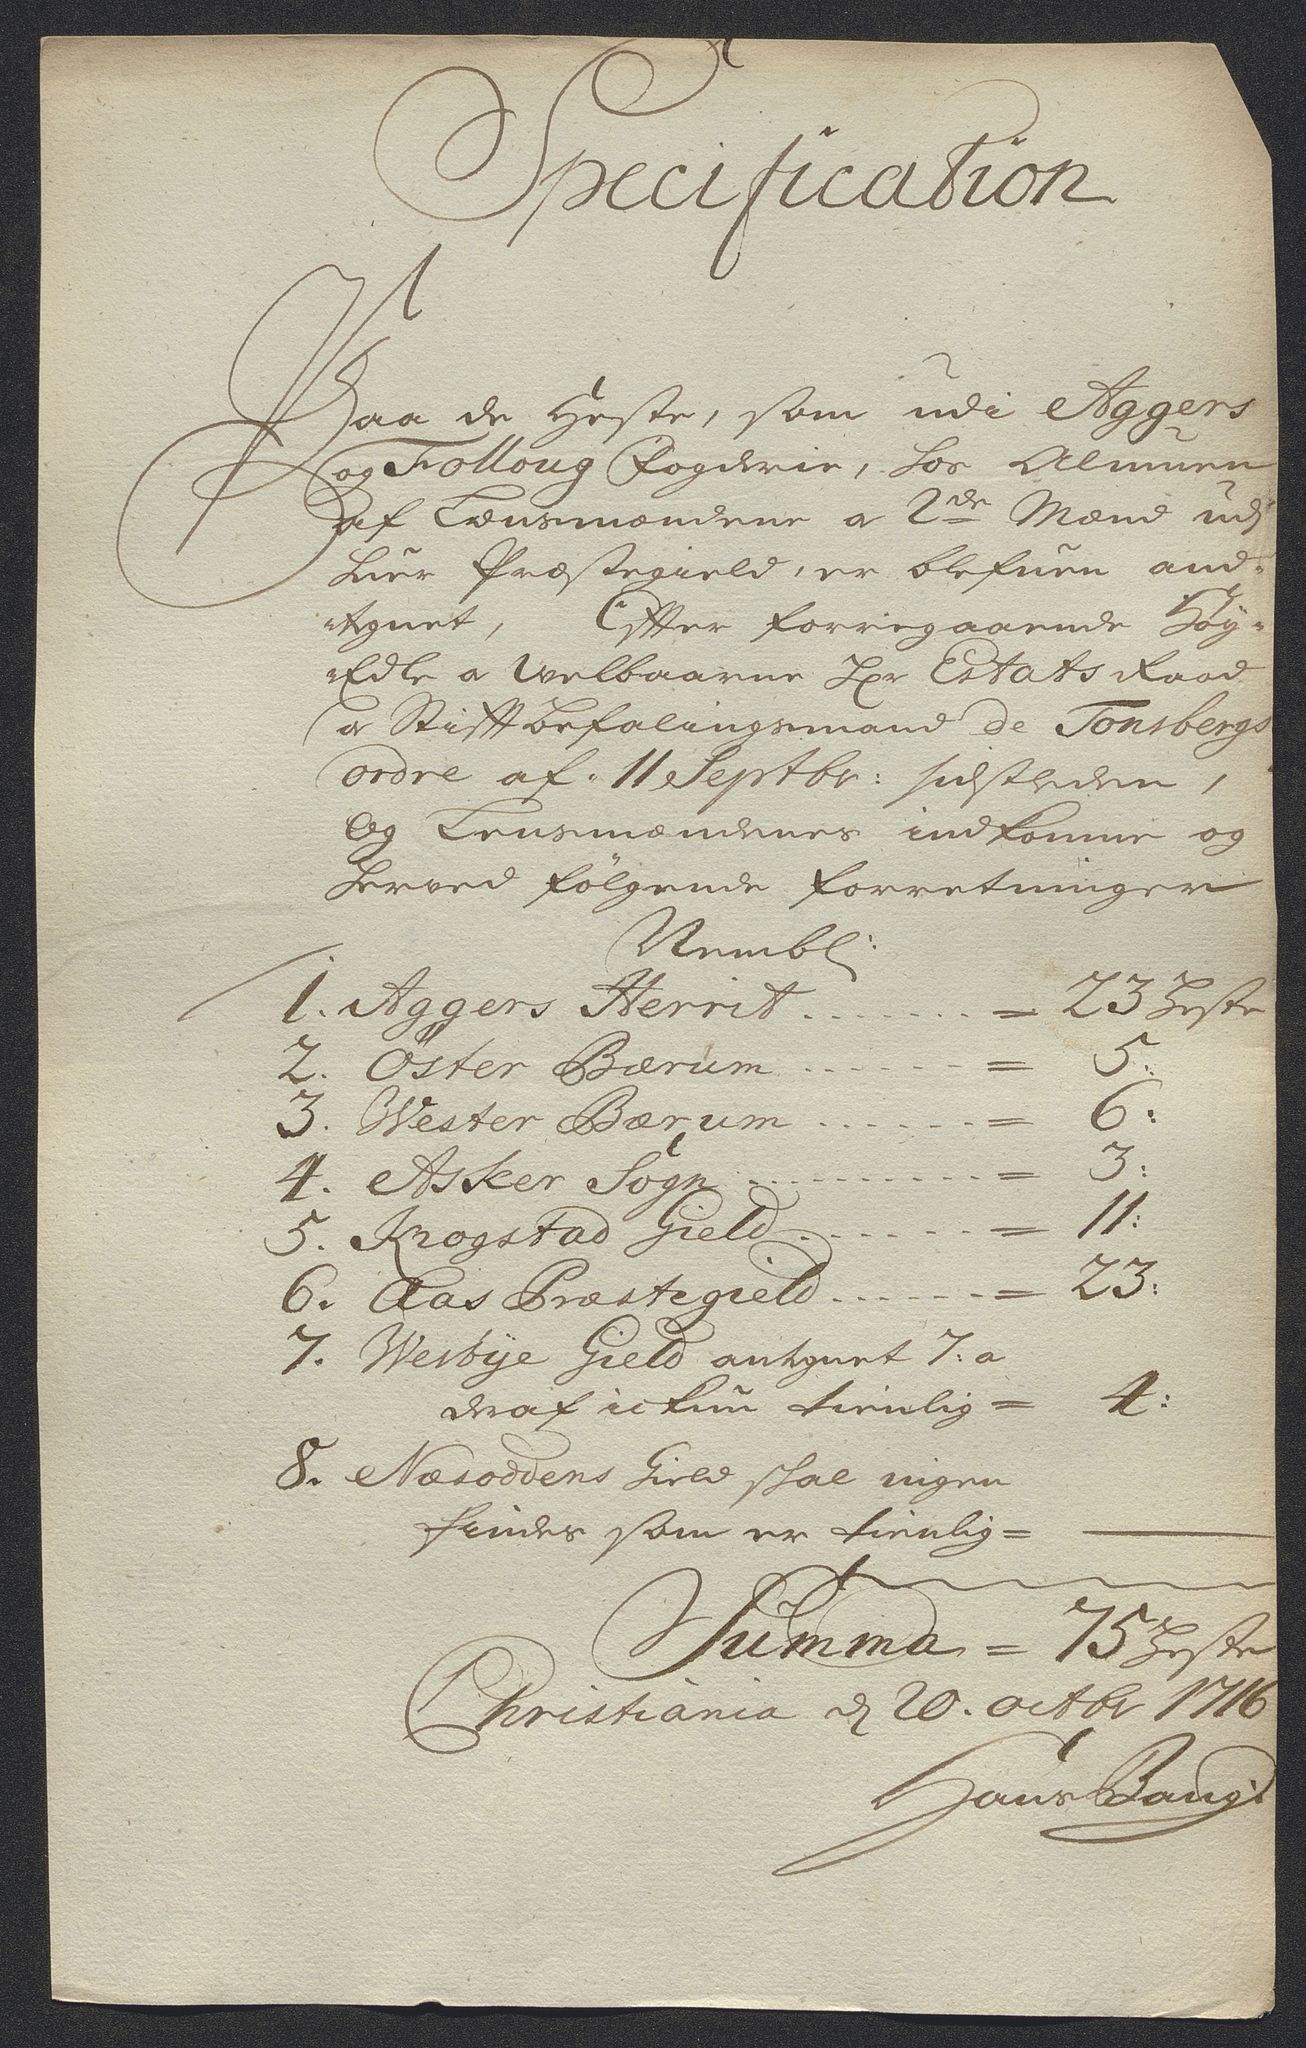 Specification
Paa de Heste, som udi Aggers
og Folloug Fogderie, hos Almuen
af Lensmændene a 2de Mænd udj
huer Præstegield, er blefuen and-
tegnet, Efter forregaaende Høy-
Edle a Velbaarne Hr Estats Raad
a Stift befalingsmand de Tonsbergs
ordre af 11 Septbr: sidstleden,
Og Lensmændenes indkomne og
herved følgende forretninger
Nembl:
1. Aggers Herrit ....... = 23 Heste
2. Öster Bærum ...... = 5:
3. Wester Bærum ...... = 6:
4. Asker Sogn .......... = 3:
5. Krogstad Gield ....... = 11:
6. Aas Præstegield ...... = 23:
7. Wesbye Gield antegnet 7: a
deraf ickun tienlig = 4:
8. Næsoddens Gield skal ingen
findes som er tienlig =
Summa = 75 Heste
Christiania d 20. octbr 1716
Hans Bang